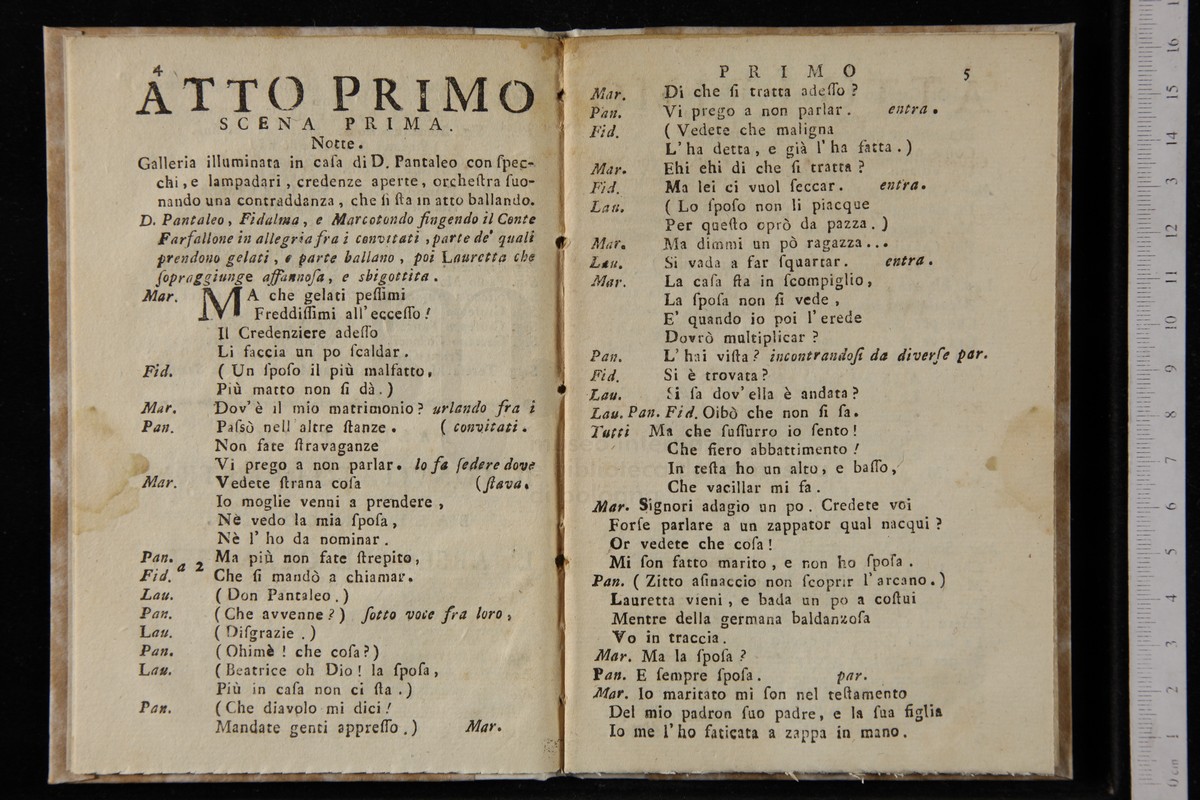 4
ATTO PRIMO
SCENA PRIMA.
Notte.
Galleria illuminata in caſa di D. Pantaleo con ſpec-
chi, e lampadari, credenze aperte, orcheſtra ſuo-
nando una contraddanza, che ſi ſta in atto ballando.
D. Pantaleo, Fidalma, e Marcotondo fingendo il Conte
Farfallone in allegria fra i convitati, parte de' quali
prendono gelati, e parte ballano, poi Lauretta che
ſopraggiunge affannoſa, e sbigottita.
Mar. MA che gelati peſſimi
Freddiſſimi all' ecceſſo!
Il Credenziere adeſſo
Li faccia un po ſcaldar.
Fid. (Un ſpoſo il più malfatto,
Più matto non ſi dà.)
Mar. Dov' è il mio matrimonio? urlando fra i
Pan. Paſsò nell' altre ſtanze. (convitati.
Non fate ſtravaganze
Vi prego a non parlar. lo fa ſedere dove
Mar. Vedete ſtrana coſa (ſtava.
Io moglie venni a prendere,
Nè vedo la mia ſpoſa,
Nè l' ho da nominar.
Pan. a 2 Ma più non fate ſtrepito,
Fid. Che ſi mandò a chiamar.
Lau. (Don Pantaleo.)
Pan. (Che avvenne?) ſotto voce fra loro,
Lau. (Diſgrazie.)
Pan. (Ohimè! che coſa?)
Lau. (Beatrice oh Dio! la ſpoſa,
Più in caſa non ci ſta.)
Pan. (Che diavolo mi dici!
Mandate genti appreſſo.) Mar.
PRIMO 5
Mar. Di che ſi tratta adeſſo?
Pan. Vi prego a non parlar. entra.
Fid. (Vedete che maligna
L' ha detta, e già l' ha fatta.)
Mar. Ehi ehi di che ſi tratta?
Fid. Ma lei ci vuol ſeccar. entra.
Lau. (Lo ſpoſo non li piacque
Per queſto oprò da pazza.)
Mar. Ma dimmi un pò ragazza...
Lau. Si vada a far ſquartar. entra.
Mar. La caſa ſta in ſcompiglio,
La ſpoſa non ſi vede,
E' quando io poi l' erede
Dovrò multiplicar?
Pan. L' hai viſta? incontrandoſi da diverſe par.
Fid. Si è trovata?
Lau. Si ſa dov' ella è andata?
Lau. Pan. Fid. Oibò che non ſi ſa.
Tutti Ma che ſuſſurro io ſento!
Che fiero abbattimento!
In teſta ho un alto, e baſſo,
Che vacillar mi fa.
Mar. Signori adagio un po. Credete voi
Forſe parlare a un zappator qual nacqui?
Or vedete che coſa!
Mi ſon fatto marito, e non ho ſpoſa.
Pan. (Zitto aſinaccio non ſcoprir l' arcano.)
Lauretta vieni, e bada un po a coſtui
Mentre della germana baldanzoſa
Vo in traccia.
Mar. Ma la ſpoſa?
Pan. E ſempre ſpoſa. par.
Mar. Io maritato mi ſon nel teſtamento
Del mio padron ſuo padre, e la ſua figlia
Io me l' ho faticata a zappa in mano.